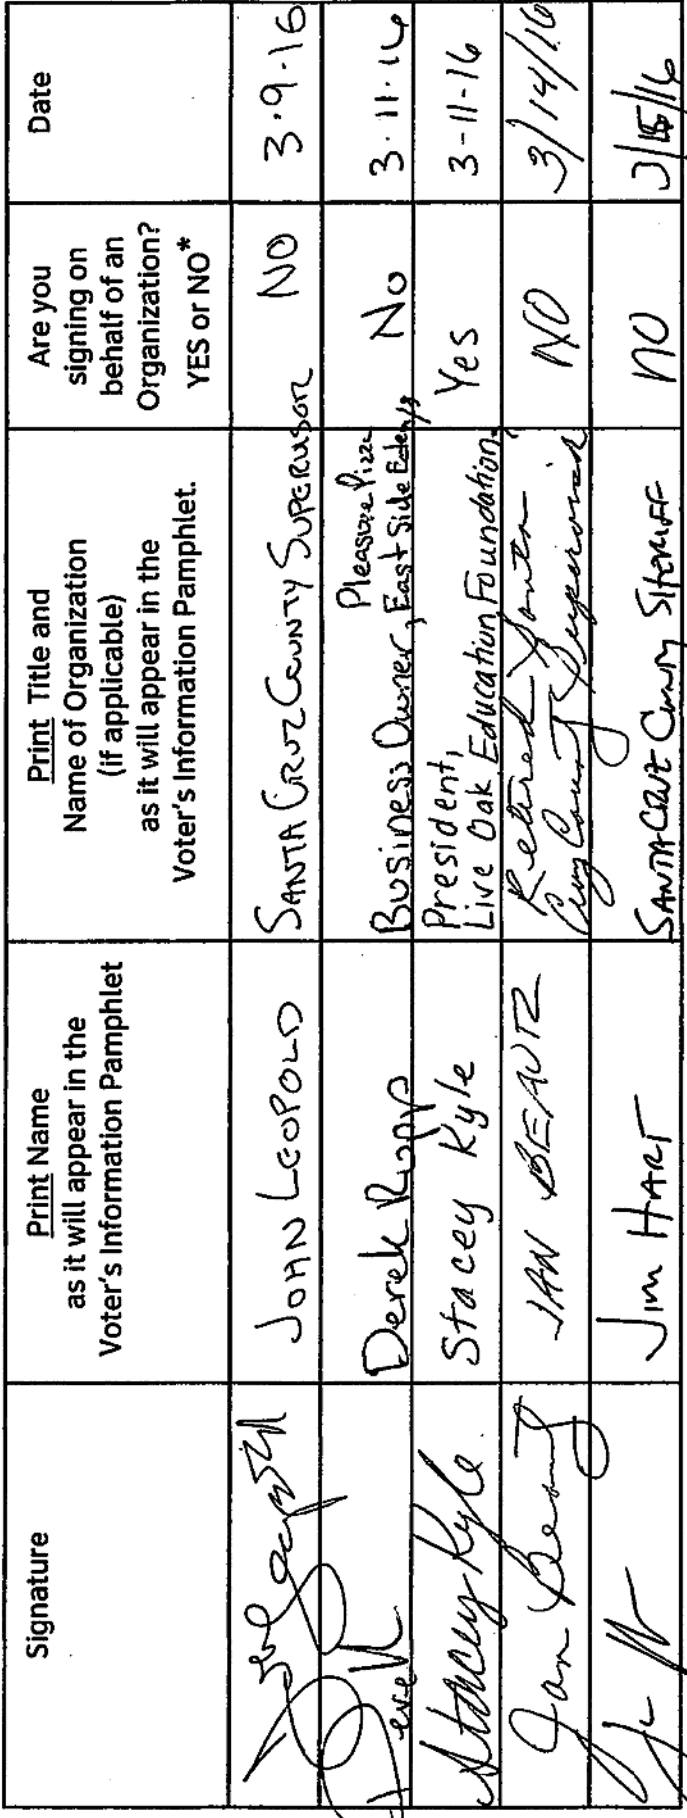 Signature
Print Name
as it will appear in the
Voter's Information Pamphlet
Print Title and
Name of Organization
(if applicable)
as it will appear in the
Voter's Information Pamphlet.
Are you
signing on
behalf of an
Organization?
YES or NO*
Date
JOHN LEOPOLD
SANTA CRUZ COUNTY SUPERVISOR
NO
3.9.16
Derek Rupp
Pleasure Pizza
Business Owner, East Side Eatery's
No
3.11.16
Stacey Kyle
Stacey Kyle
President,
Live Oak Education Foundation
Yes
3-11-16
Jan Beautz
JAN BEAUTZ
Retired Santa
Cruz County Supervisor
NO
3/14/16
JIM HART
SANTA CRUZ COUNTY SHERIFF
NO
3/15/16